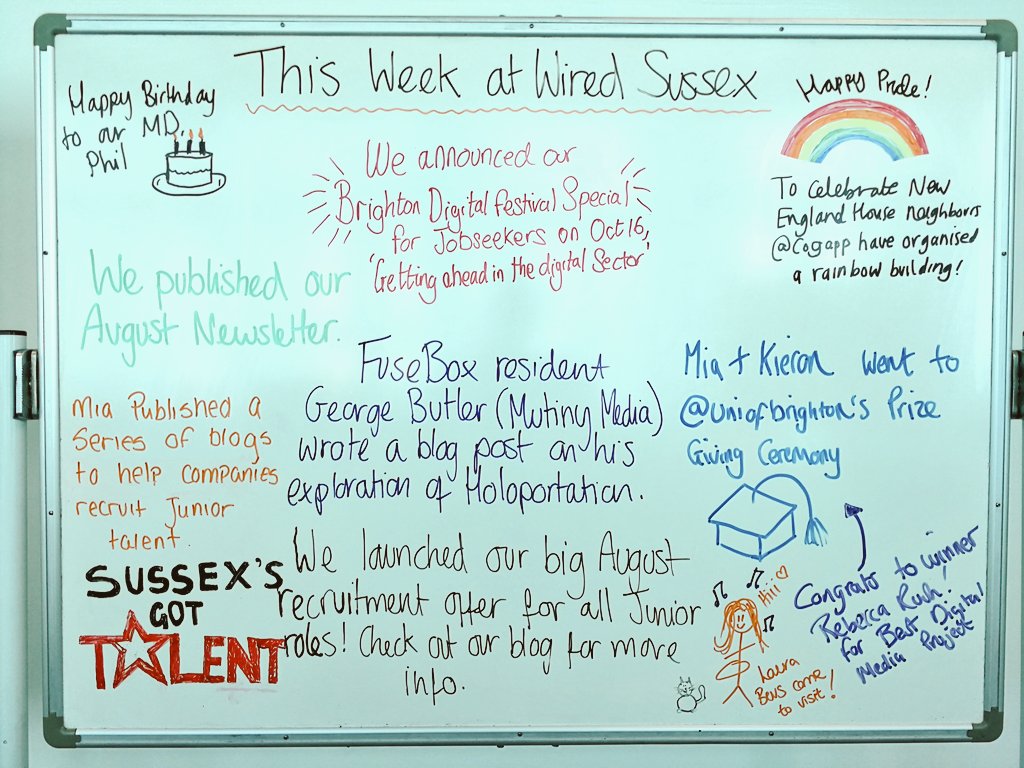 This Week at Wired Sussex
Happy Birthday
to our MD,
Phil
We announced our
Brighton Digital Festival Special
for Jobseekers on Oct 16,
'Getting ahead in the digital Sector'
Happy Pride!
To celebrate New
England House neighbours
@Cogapp have organised
a rainbow building!
We published our
August Newsletter.
FuseBox resident
George Butler (Mutiny Media)
wrote a blog post on his
exploration of Holoportation.
Mia + Kieran went to
@uniofbrighton's Prize
Giving Ceremony
Mia Published a
Series of blogs
to help companies
recruit Junior
talent
SUSSEX'S
GOT
TALENT
We launched our big August
recruitment offer for all Junior
roles! Check out our blog for more
info.
Hiii
Laura
come
to visit!
Congrats to winner
Rebecca Rush,
for Best Digital
Media Project